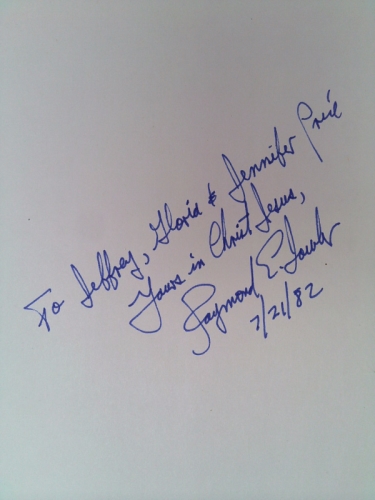 To Jeffrey, Gloria & Jennifer Price
Yours in Christ Jesus,
Raymond E. Fowler
7/21/82